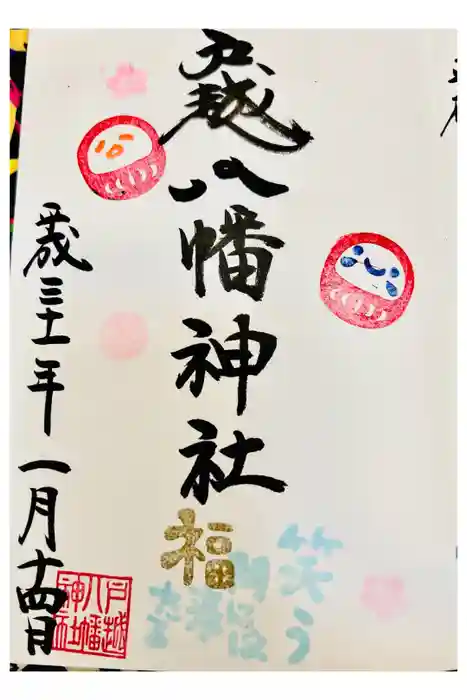 戸越八幡神社
平成三十一年一月十四日
福
笑う
門には
戸越
八幡
神社